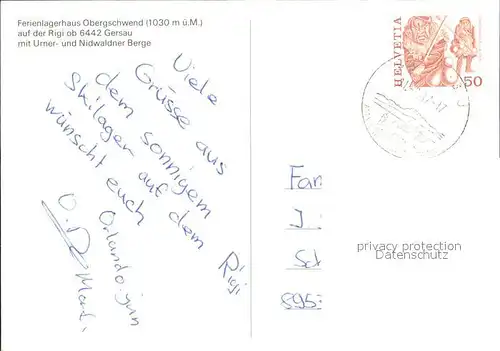 Ferienlagerhaus Obergschwend (1030 m ü.M.)
auf der Rigi ob 6442 Gersau
mit Urner- und Nidwaldner Berge
HELVETIA
50
Viele
Grüsse aus
dem sonnigem
Skilager auf dem Rigi
wünscht euch
Orlando jun
Fam
privacy protection
Datenschutz